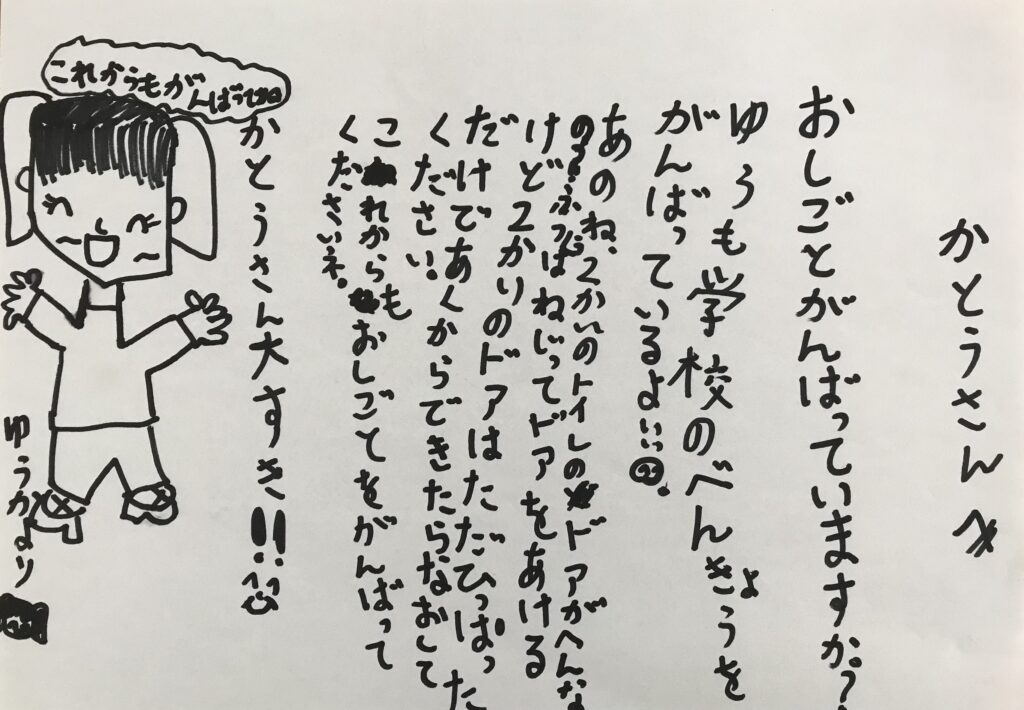 かとうさんへ
おしごとがんばっていますか?
ゆうも学校のべんきょうを
がんばっているよ!!
あのね、2かいのトイレのドアがへんな
の?ふつうはねじってドアをあける
けど2かいのドアはただひっぱった
だけであくからできたらなおして
ください。
これからもおしごとをがんばって
くださいネ。
かとうさん大すき!!
これからもがんばってね
ゆうかより